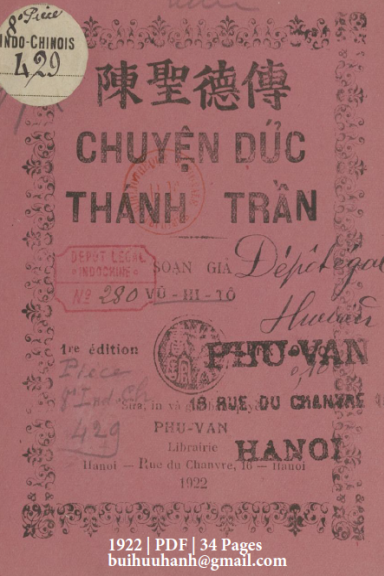 8º Pièce
INDO-CHINOIS
429
陳聖德傳
CHUYỆN ĐỨC
THÁNH TRẦN
DEPOT LEGAL
INDOCHINE
Nº 280
SOẠN GIẢ
VŨ-HI-TÔ
Dépôt légal
1re édition
Pièce
8º Ind. Ch.
429
PHU-VAN
16 RUE DU CHANVRE
HANOI
in và
PHU-VAN
Librairie
Hanoi — Rue du Chanvre, 16 — Hanoi
1922
1922 | PDF | 34 Pages
buihuuhanh@gmail.com